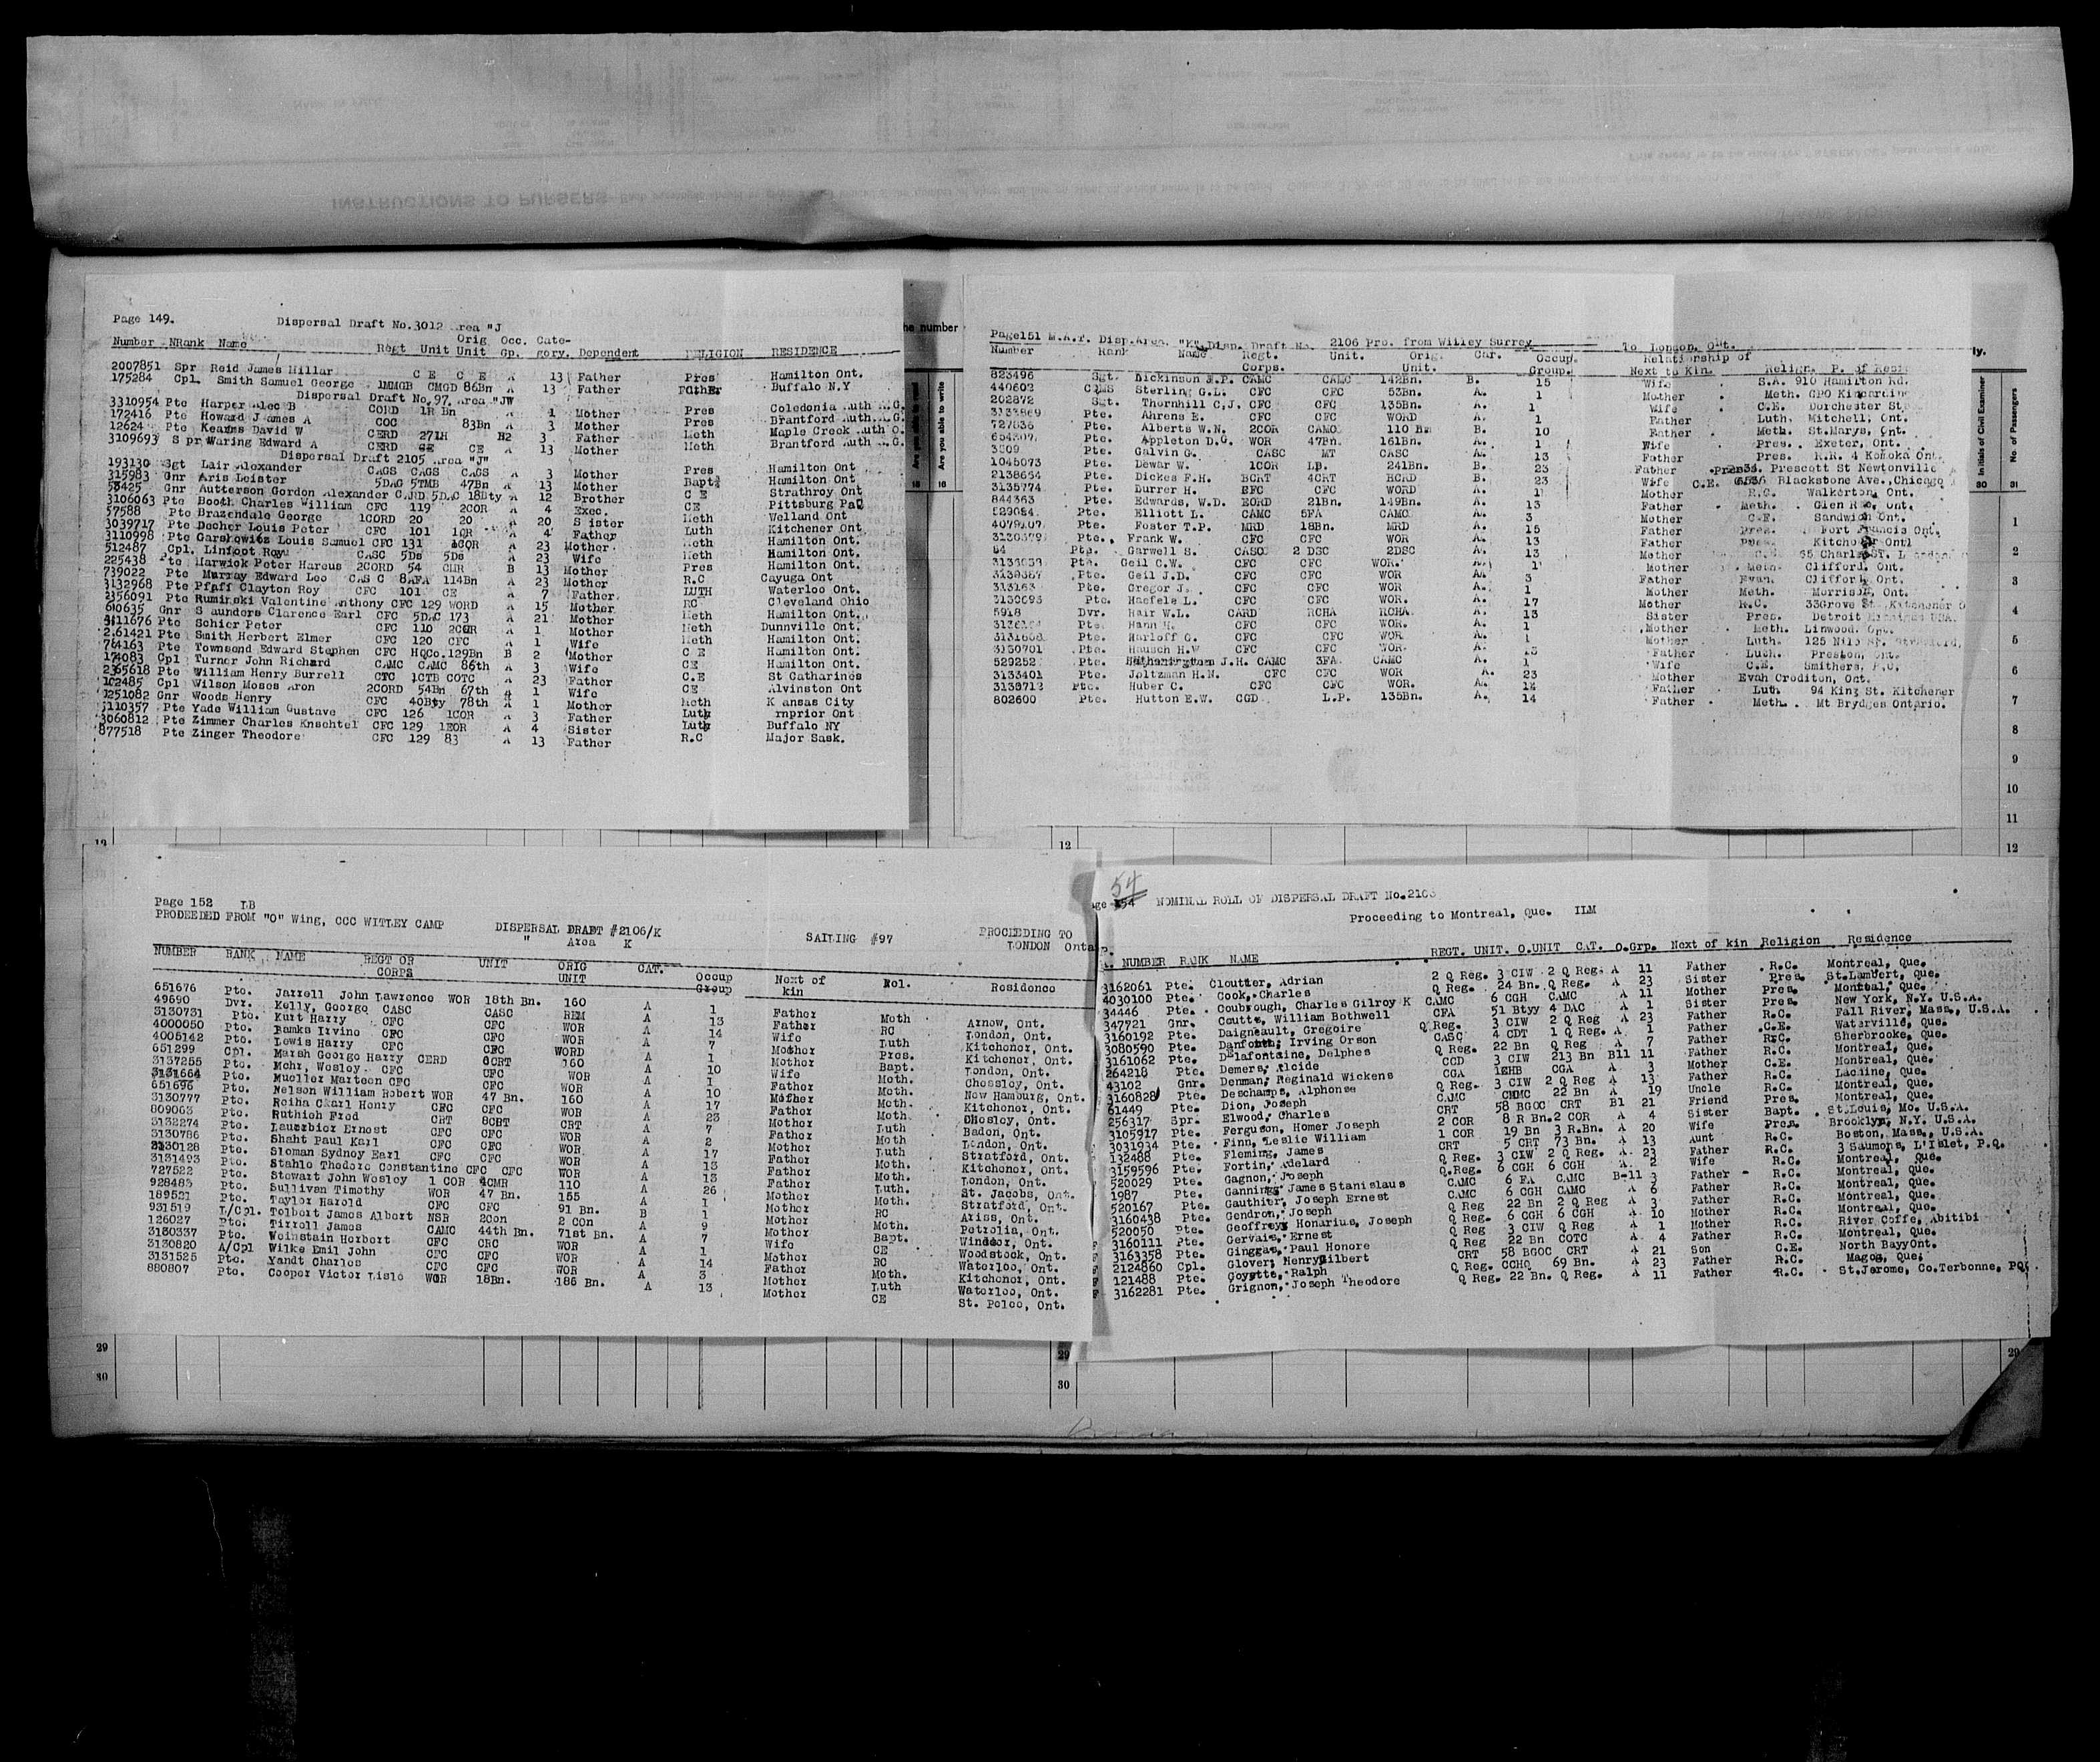 Page 149.
Dispersal Draft No.3012 Area "J
Number NRank Name Regt Unit Orig Unit Occ. Gp. Cate-gory. Dependent RELIGION RESIDENCE
2007851 Spr Reid James Millar C E C E A 13 Father Pres Hamilton Ont.
175284 Cpl Smith Samuel George 1MMGB CMGD 86Bn A 13 Father Buffalo N.Y
Dispersal Draft No.97 Area "JW
3310954 Pte Harper Alec B CORD 1R Bn A 1 Mother Pres Coledonia
172416 Pte Howard James A COC 83Bn A 3 Mother Pres Brantford
12624 Pte Kearns David W CERD 271H B2 3 Father Meth Maple Creek
3109693 Spr Waring Edward A CERD CE CE A 13 Mother Meth Brantford
Dispersal Draft 2105 Area "J"
193130 Sgt Lair Alexander CAGS CAGS CAGS A 3 Mother Pres Hamilton Ont
315983 Gnr Aris Leister 5DAC 5TMB 47Bn A 13 Mother Bapt Hamilton Ont
Gnr Autterson Gordon Alexander CARD 5DAC 18Bty A 12 Brother C E Strathroy Ont
3106063 Pte Booth Charles William CFC 119 2COR A 4 Exec. CE Pittsburg Pa
57588 Pte Brazendale George 1CORD 20 20 A 20 Sister Meth Welland Ont
3039717 Pte Decher Louis Peter CFC 101 1OR A 4 Father Luth Kitchener Ont
3110998 Pte Garskowitz Louis Samuel CFC 131 1COR A 23 Mother Meth Hamilton Ont.
512487 Cpl. Linfoot Roy CASC 5Ds 5Ds A 23 Wife Meth Hamilton Ont.
225438 Pte Harwick Peter Harcus 2CORD 54 CMR B 13 Mother Pres Hamilton Ont.
739022 Pte Murray Edward Leo CAS C 8AFA 114Bn A 23 Mother R.C Cayuga Ont
3132968 Pte Pfaff Clayton Roy CFC 101 CE A 7 Father LUTH Waterloo Ont.
2356091 Pte Ruminski Valentine Anthony CFC 129 WORD A 15 Mother RC Cleveland Ohio
610635 Gnr Saunders Clarence Earl CFC 5DAC 173 A 21 Mother Meth Hamilton Ont.
3111676 Pte Schier Peter CFC 110 2COR A 1 Mother Meth Dunnville Ont.
2261421 Pte Smith Herbert Elmer CFC 120 CFC A 1 Wife Meth Hamilton Ont.
784163 Pte Townsend Edward Stephen CFC HQCo.129Bn B 2 Mother C E Hamilton Ont.
174083 Cpl Turner John Richard CAMC CAMC 86th A 3 Wife CE Hamilton Ont.
2365618 Pte William Henry Burrell CTC 1CTB COTC A 23 Father C.E St Catharines
102485 Cpl Wilson Moses Aron 2CORD 54Bn 67th A 1 Wife CE Alvinston Ont
1251082 Gnr Woods Henry CFC 40Bty 78th A 1 Mother Meth Kansas City
3110357 Pte Yade William Gustave CFC 126 1COR A 3 Father Luth Arnprior Ont
3060812 Pte Zimmer Charles Knechtel CFC 129 1EOR A 4 Sister Luth Buffalo NY
877518 Pte Zinger Theodore CFC 129 83 A 13 Father R.C Major Sask.
Page151 M.A.T. Disp.Area. "K" Disp. Draft No. 2106 Pro. from Witley Surrey To London, Ont.
Number Rank Name Regt. Corps. Unit. Orig. Unit. Car. Occup. Group. Relationship of Next to Kin. Relign. P. of Resi
823496 Sgt. Dickinson N.P. CAMC CAMC 142Bn. B. 15 Wife S.A. 910 Hamilton Rd.
440602 CQMS Sterling G.L. CFC CFC 53Bn. A. 1 Mother Meth. GPO Kincardine
202872 Sgt. Thornhill C.J. CFC CFC 135Bn. A. 1 Wife C.E. Dorchester St.
3133869 Pte. Ahrens E. CFC CFC WORD A. 1 Father Luth. Mitchell, Ont.
727836 Pte. Alberts W.N. 2COR CAMC 110 Bn B. 10 Father Meth. St.Marys, Ont.
Pte. Appleton D.G. WOR 47Bn. 161Bn. A. 1 Wife Pres. Exeter, Ont.
3509 Pte. Galvin G. CASC MT CASC A. 13 Father Pres. R.R. 4 Komoka Ont.
1045073 Pte. Dewar W. 1COR Lp. 241Bn. B. 23 Father Pres. Prescott St Newtonville
2138654 Pte. Dickes F.H. BCRT 4CRT BCRD A. 23 Wife C.E. Blackstone Ave.,Chicago
3135774 Pte. Durrer H. CFC CFC WORD A. 1 Mother R.C. Walkerton, Ont.
844363 Pte. Edwards, W.D. EORD 21Bn. 149Bn. A. 13 Father Meth. Glen Rae, Ont.
529054 Pte. Elliott L. CAMC 5FA CAMC A. 3 Mother C.E. Sandwich Ont.
Pte. Foster T.P. MRD 18Bn. MRD A. 15 Father Pres. Fort Francis Ont.
Pte. Frank W. CFC CFC WOR A. 13 Father Kitchener Ont
Pte. Garwell S. CASC 2 DSC 2DSC A. 13 Mother 65 Charles ST. London
Pte. Geil C.W. CFC CFC WOR. A. 1 Mother Meth. Clifford, Ont.
3139387 Pte. Geil J.D. CFC CFC WOR A. 3 Father Evan. Clifford, Ont.
Pte. Gregor J. CFC CFC WOR A. 1 Mother Meth. Morrison, Ont.
3130693 Pte. Haefele L. CFC CFC WOR A. 17 Mother R.C. 33Grove St. Kitchener
5918 Dvr. Hair W.L. CARD RCHA RCHA. A. 13 Sister Pres. Detroit
Pte. Hann H. CFC CFC WOR. A. 1 Mother Meth. Linwood. Ont.
Pte. Harloff O. CFC CFC WOR A. 1 Mother Luth. 125
3130701 Pte. Hausch H.W CFC CFC WOR. A. Father Luth. Preston, Ont.
529252 Pte. J.H. CAMC 3FA. CAMC A. 1 Wife C.E. Smithers,
3133401 Pte. Joltzman H.N. CFC CFC WOR A. 23 Mother Evah Croditon, Ont.
3138712 Pte. Huber C. CFC CFC WOR. A. 14 Father Luth 94 King St. Kitchener
802600 Pte. Hutton E.W. CGD L.P. 135Bn. A. 14 Father Meth. Mt Brydges Ontario.
Page 152 LB
PRODEEDED FROM "O" Wing, CCC WITLEY CAMP DISPERSAL DRAFT #2106/K SAILING #97 PROCEEDING TO
" Area K LONDON Onta
NUMBER RANK NAME REGT OR CORPS UNIT ORIG UNIT CAT. Occup Group Next of kin Rel. Residence
651676 Pte. Jarrell John Lawrence WOR 18th Bn. 160 A 1 Father Meth Arnow, Ont.
49690 Dvr. Kelly, George CASC CASC REM A 13 Father RC London, Ont.
3130731 Pte. Kurt Harry CFC CFC WOR A 14 Wife Luth Kitchener, Ont.
4000050 Pte. Bamks Irvine CFC CFC WOR A 7 Mother Pres. Kitchener, Ont.
4005142 Pte. Lewis Harry CFC CFC WORD A 1 Mother Bapt. London, Ont.
651299 Cpl. Marsh George Harry CERD 8CRT 160 A 10 Wife Meth. Chessley, Ont.
3137255 Pte. Mohr, Wesley CFC CFC WOR A 1 Father Meth. New Hamburg, Ont.
3131664 Pte. Mueller Marteen CFC CFC WOR A 10 Mother Meth. Kitchener, Ont.
651696 Pte. Nelson William Robert WOR 47 Bn. 160 A 17 Father Meth. Chesley, Ont.
3130777 Pte. Reiha Charl Henry CFC CFC WOR A 23 Mother Luth Baden, Ont.
809063 Pte. Ruthieh Fred CRT 8CRT CRT A 7 Father Meth London, Ont.
3132274 Pte. Lauerbier Ernest CFC CFC WOR A 2 Mother Luth Stratford, Ont.
3130786 Pte. Shaht Paul Karl CFC CFC WOR A 17 Father Meth. Kitchener, Ont.
3130128 Pte. Sleman Sydney Earl CFC CFC WOR A 13 Father Meth. London, Ont.
3131493 Pte. Stahle Theodore Constantine CFC CFC WOR A 13 Father Luth. St. Jacobs, Ont.
727522 Pte. Stewart John Wesley 1 COR 4CMR 110 A 26 Mother Meth. Stratford, Ont.
928483 Pte. Sullivan Timothy WOR 47 Bn. 155 A 1 Mother RC Ariss, Ont.
189521 Pte. Taylor Harold CFC CFC 91 Bn. B 1 Mother Meth. Petrolia, Ont.
931519 L/Cpl. Tolbert James Albert NSR 2Con 2 Con A 9 Mother Bapt. Windsor, Ont.
126027 Pte. Tirrell James CAMC 44th Bn. 71st Bn. A 7 Wife CE Woodstock, Ont.
3180337 Pte. Weinstain Herbert CFC CRC WOR A 1 Mother RC Waterloo, Ont.
3130820 A/Cpl Wilke Emil John CFC CFC WOR A 14 Father Meth. Kitchener, Ont.
3131525 Pte. Yandt Charles CFC CFC WOR A 3 Mother Luth Waterloo, Ont.
880807 Pte. Cooper Victor Lisle WOR 18Bn. 186 Bn. A 13 Mother CE St. Peloe, Ont.
54
NOMINAL ROLL OF DISPERSAL DRAFT No.2106
Proceeding to Montreal, Que. ILM
NUMBER RANK NAME REGT. UNIT. O.UNIT CAT. O.Grp. Next of kin Religion Residence
3162061 Pte. Cloutter, Adrian 2 Q Reg. 3 CIW 2 Q Reg. A 11 Father R.C. Montreal, Que.
4030100 Pte. Cook, Charles Q Reg. 24 Bn. Q Reg. A 23 Sister Pres. St.Lambert, Que.
34446 Pte. Coubrough, Charles Gilroy K CAMC 6 CGH CAMC A 11 Mother Pres. Montreal, Que.
347721 Gnr. Coutts, William Bothwell CFA 51 Btyy 4 DAC A 1 Sister Pres. New York, N.Y. U.S.A.
3160192 Pte. Daigneault, Gregoire Q Reg. 3 CIW 2 Q Reg A 23 Father R.C. Fall River, Mass., U.S.A.
3080590 Pte. Danforth, Irving Orson CASC 4 CDT 1 Q Reg. A 1 Father C.E. Waterville, Que.
3161062 Pte. Delafontaine, Delphes Q Reg. 22 Bn Q Reg A 7 Father R.C. Sherbrooke, Que.
264218 Pte. Demers, Alcide CCD 3 CIW 213 Bn B11 11 Father R.C. Montreal, Que.
43102 Gnr. Denman, Reginald Wickens CGA 1EHB CGA A 3 Mother C.E. Montreal, Que.
3160828 Pte. Deschamps, Alphonse Q Reg. 3 CIW 2 Q Reg A 13 Father R.C. Lachine, Que.
61449 Pte. Dion, Joseph CAMC CMMC 22 Bn A 19 Uncle R.C. Montreal, Que.
256317 Spr. Elwood, Charles CRT 58 BGOC CRT B1 21 Friend Pres. Montreal, Que.
3105917 Pte. Ferguson, Homer Joseph 2 COR 8 R Bn.2 COR A 4 Sister Bapt. St.Louis, Mo. U.S.A.
3031934 Pte. Finn, Leslie William 1 COR 19 Bn 3 R.Bn. A 20 Wife Pres. Brooklyn, N.Y. U.S.A.
132488 Pte. Fleming, James CRT 5 CRT 73 Bn. A 13 Aunt R.C. Boston, Mass., U.S.A.
3159596 Pte. Fortin, Adelard Q Reg. 3 CIW 2 Q Reg. A 23 Father R.C. 3 Saumons, L'Islet, P.Q.
520029 Pte. Gagnon, Joseph Q.Reg. 6 CGH 6 CGH A 2 Wife R.C. Montreal, Que.
1987 Pte. Ganning, James Stanislaus CAMC 6 FA CAMC B-11 3 Father R.C. Montreal, Que.
520167 Pte. Gauthier, Joseph Ernest CAMC 6 CGH CAMC A 6 Father R.C. Montreal, Que.
3160438 Pte. Gendron, Joseph Q Reg 22 Bn 2 Q Reg A 3 Father R.C. Montreal, Que.
520050 Pte. Geoffrey, Honarius, Joseph Q Reg. 6 CGH 6 CGH A 10 Mother R.C. Montreal, Que.
3160111 Pte. Gervais, Ernest Q Reg 3 CIW Q Reg A 1 Mother R.C. River Coffe, Abitibi
3163358 Pte. Ginggas, Paul Honore Q Reg 22 Bn COTC A 4 Father R.C. Montreal, Que.
2124860 Cpl. Glover, Henry Gilbert CRT 58 BGOC CRT A 21 Son C.E. North Bay Ont.
121488 Pte. Goyette, Ralph Q Reg. CCHQ 69 Bn. A 23 Father R.C. Magog, Que.
3162281 Pte. Grignon, Joseph Theodore Q Reg. 22 Bn. Q Reg. A 11 Father R.C. St.Jerome, Co.Terbonne, PQ.